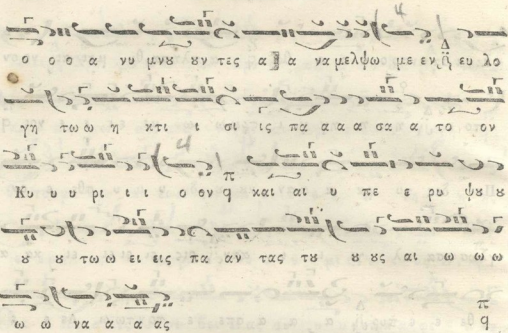 ο ο ο α νυ μνȣ ȣν τες α α να μελψω με εν Δ ευ λο
γη τω ω η κτι ι σι ις πα α α α σα α το ον
Κυ υ υ ρι ι ι ο ον π q και αι υ πε ε ρυ ψȣ ȣ
ȣ ȣ τω ω ει εις πα αν τας τȣ ȣ ȣς αι ω ω ω
ω ω να α α ας π q